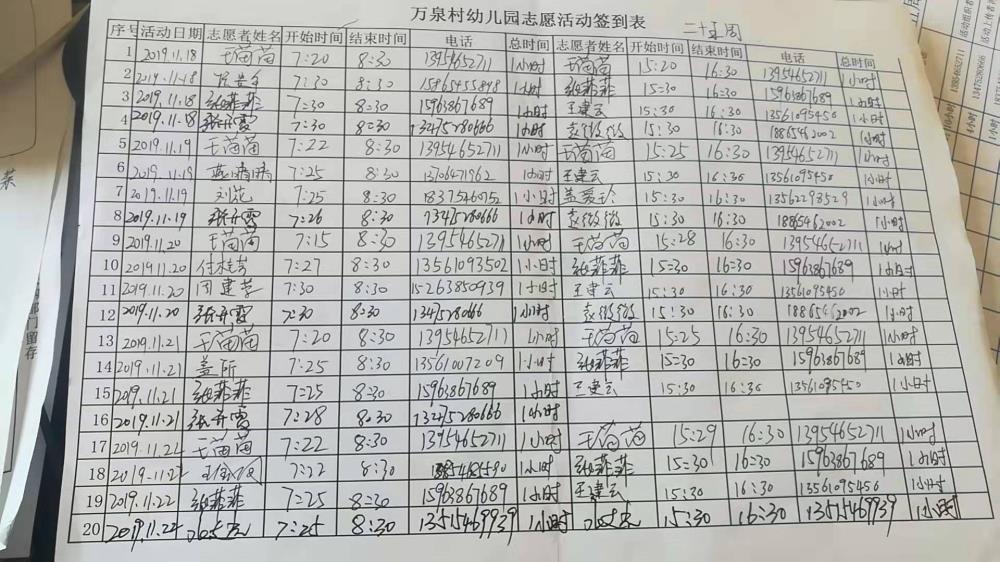 万泉村幼儿园志愿活动签到表 二十五周
序号 活动日期 志愿者姓名 开始时间 结束时间 电话 总时间 志愿者姓名 开始时间 结束时间 电话 总时间
1 2019.11.18 王苗苗 7:20 8:30 13954652711 1小时 王苗苗 15:20 16:30 13954652711 1小时
2 2019.11.18 7:30 8:30 1小时 张菲菲 15:30 16:30 15963867689 1小时
3 2019.11.18 张菲菲 7:30 8:30 15963867689 1小时 王建云 15:30 16:30 13561095450 1小时
4 2019.11.18 张开霞 7:30 8:30 13475280666 1小时 袁微微 15:30 16:30 18865462002 1小时
5 2019.11.19 王苗苗 7:22 8:30 13954652711 1小时 王苗苗 15:25 16:30 13954652711 1小时
6 2019.11.19 7:25 8:30 13706471962 1小时 王建云 15:30 16:30 13561095450 1小时
7 2019.11.19 7:25 8:30 18375460752 1小时 盖爱玲 15:30 16:30 13562298529 1小时
8 2019.11.19 张开霞 7:26 8:30 13475280666 1小时 袁微微 15:30 16:30 18865462002 1小时
9 2019.11.20 王苗苗 7:15 8:30 13954652711 1小时 王苗苗 15:28 16:30 13954652711 1小时
10 2019.11.20 付桂芳 7:27 8:30 13561093502 1小时 张菲菲 15:30 16:30 15963867689 1小时
11 2019.11.20 周建芳 7:30 8:30 15263850939 1小时 王建云 15:30 16:30 13561095450 1小时
12 2019.11.20 张开霞 7:30 8:30 1小时 袁微微 15:30 16:30 18865462002 1小时
13 2019.11.21 王苗苗 7:20 8:30 13954652711 1小时 王苗苗 15:25 16:30 13954652711 1小时
14 2019.11.21 7:25 8:30 13561007209 1小时 张菲菲 15:30 16:30 15963867689 1小时
15 2019.11.21 张菲菲 7:25 8:30 15963867689 1小时 王建云 15:30 16:30 13561095450 1小时
16 2019.11.21 张开霞 7:28 8:30 13475280666 1小时
17 2019.11.22 王苗苗 7:22 8:30 13954652711 1小时 王苗苗 15:29 16:30 13954652711 1小时
18 2019.11.22 7:22 8:30 1小时 张菲菲 15:30 16:30 15963867689 1小时
19 2019.11.22 张菲菲 7:25 8:30 15963867689 1小时 王建云 15:30 16:30 13561095450 1小时
20 2019.11.22 7:25 8:30 13515469939 1小时 15:30 16:30 13515469939 1小时